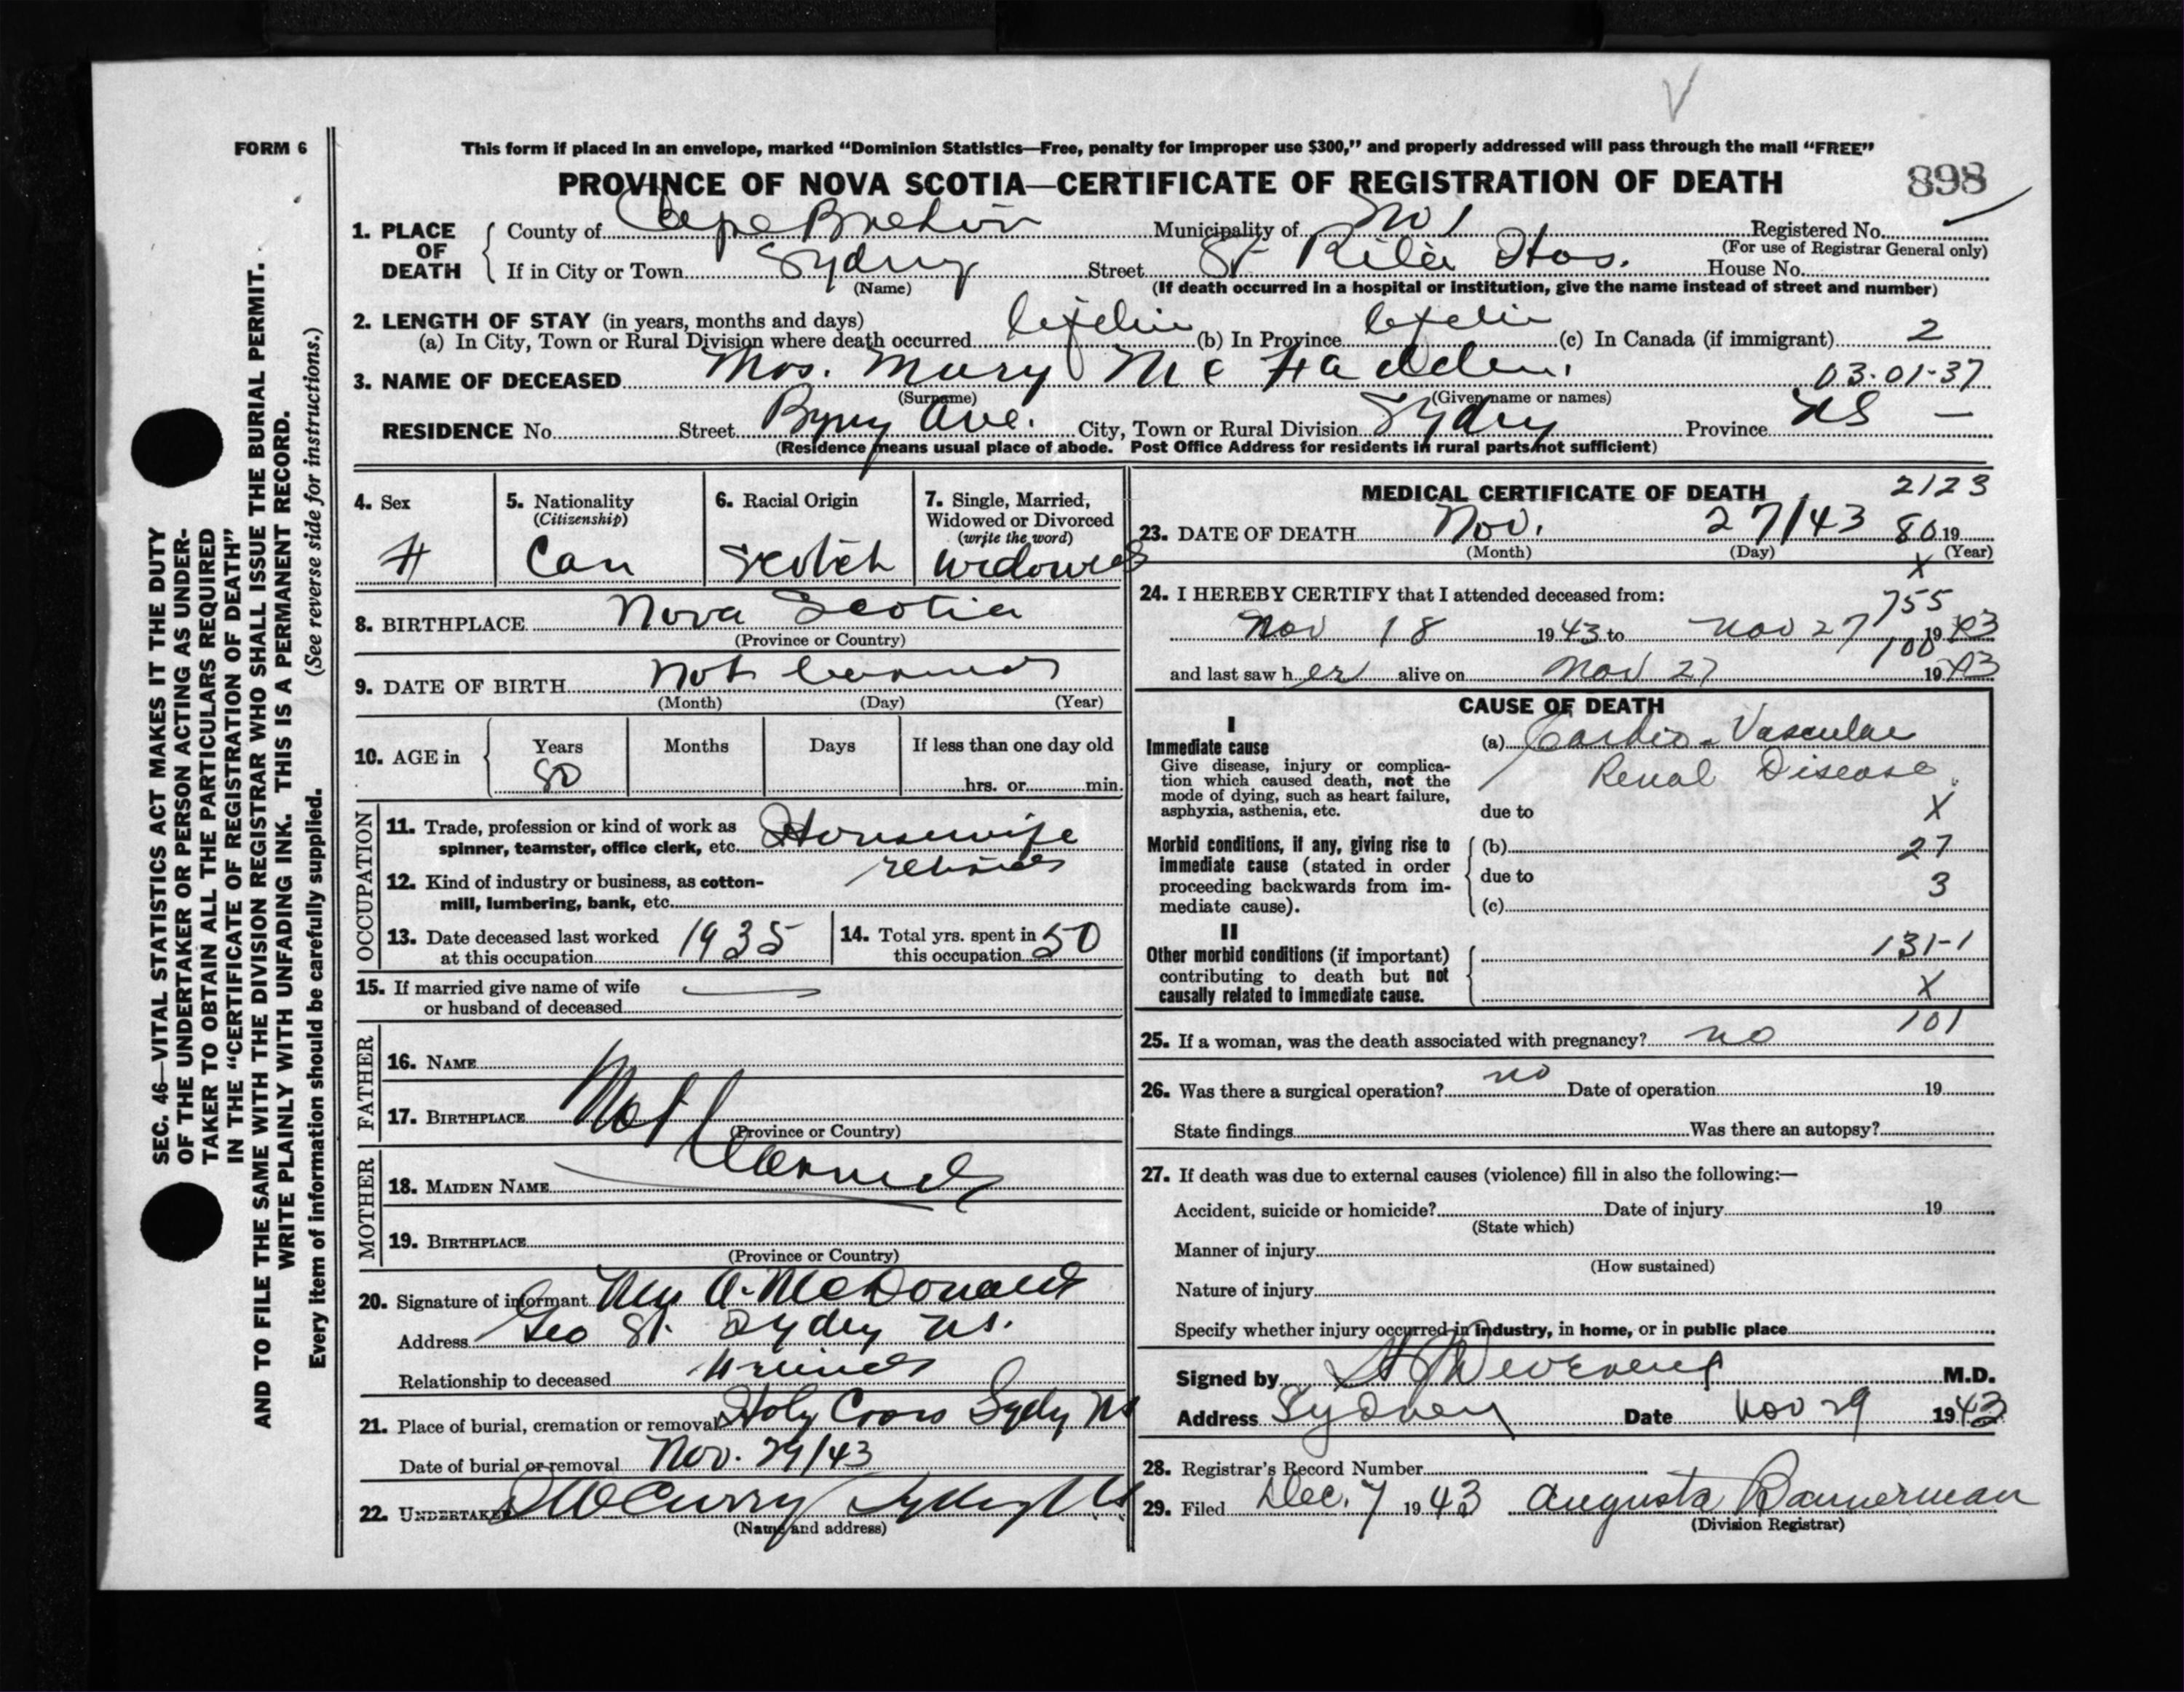 FORM 6
This form if placed in an envelope, marked “Dominion Statistics—Free, penalty for improper use $300,” and properly addressed will pass through the mail “FREE”
PROVINCE OF NOVA SCOTIA—CERTIFICATE OF REGISTRATION OF DEATH
898
1. PLACE OF DEATH
County of Cape Breton Municipality of No 1 Registered No.
(For use of Registrar General only)
If in City or Town Sydney Street St Rita Hos. House No.
(Name) (If death occurred in a hospital or institution, give the name instead of street and number)
2. LENGTH OF STAY (in years, months and days)
(a) In City, Town or Rural Division where death occurred (b) In Province (c) In Canada (if immigrant) 2
3. NAME OF DECEASED Mrs. Mary McFadden. 03-01-37
(Surname) (Given name or names)
RESIDENCE No. Street Ave. City, Town or Rural Division Sydney Province NS —
(Residence means usual place of abode. Post Office Address for residents in rural parts not sufficient)
4. Sex
F
5. Nationality
(Citizenship)
Can
6. Racial Origin
Scotch
7. Single, Married,
Widowed or Divorced
(write the word)
Widowed
8. BIRTHPLACE Nova Scotia
(Province or Country)
9. DATE OF BIRTH Not
(Month) (Day) (Year)
10. AGE in
Years Months Days If less than one day old
80 hrs. or min.
OCCUPATION
11. Trade, profession or kind of work as
spinner, teamster, office clerk, etc. Housewife
retired
12. Kind of industry or business, as cotton-
mill, lumbering, bank, etc.
13. Date deceased last worked
at this occupation 1935
14. Total yrs. spent in
this occupation 50
15. If married give name of wife
or husband of deceased —
FATHER
16. NAME
17. BIRTHPLACE Not
(Province or Country)
MOTHER
18. MAIDEN NAME
19. BIRTHPLACE
(Province or Country)
20. Signature of informant Mrs A. McDonald
Address Geo St. Sydney NS.
Relationship to deceased Friend
21. Place of burial, cremation or removal Holy Cross Sydney NS
Date of burial or removal Nov. 29/43
22. UNDERTAKER Curry Sydney NS
(Name and address)
MEDICAL CERTIFICATE OF DEATH 2123
23. DATE OF DEATH Nov. 27/43 80 19
(Month) (Day) (Year)
X
24. I HEREBY CERTIFY that I attended deceased from:
755
Nov 18 1943 to Nov 27 1943
100
and last saw her alive on Nov 27 1943
CAUSE OF DEATH
I
Immediate cause
Give disease, injury or complica-
tion which caused death, not the
mode of dying, such as heart failure,
asphyxia, asthenia, etc.
(a) Cardio-Vascular
Renal Disease.
due to X
Morbid conditions, if any, giving rise to
immediate cause (stated in order
proceeding backwards from im-
mediate cause).
(b) 27
due to 3
(c)
II
Other morbid conditions (if important)
contributing to death but not
causally related to immediate cause.
131-1
X
101
25. If a woman, was the death associated with pregnancy? no
26. Was there a surgical operation? no Date of operation 19
State findings Was there an autopsy?
27. If death was due to external causes (violence) fill in also the following:—
Accident, suicide or homicide? Date of injury 19
(State which)
Manner of injury
(How sustained)
Nature of injury
Specify whether injury occurred in industry, in home, or in public place
Signed by M.D.
Address Sydney Date Nov 29 1943
28. Registrar's Record Number
29. Filed Dec. 7 1943 Augusta Bannerman
(Division Registrar)
SEC. 46—VITAL STATISTICS ACT MAKES IT THE DUTY
OF THE UNDERTAKER OR PERSON ACTING AS UNDER-
TAKER TO OBTAIN ALL THE PARTICULARS REQUIRED
IN THE “CERTIFICATE OF REGISTRATION OF DEATH”
AND TO FILE THE SAME WITH THE DIVISION REGISTRAR WHO SHALL ISSUE THE BURIAL PERMIT.
WRITE PLAINLY WITH UNFADING INK. THIS IS A PERMANENT RECORD.
Every item of information should be carefully supplied. (See reverse side for instructions.)